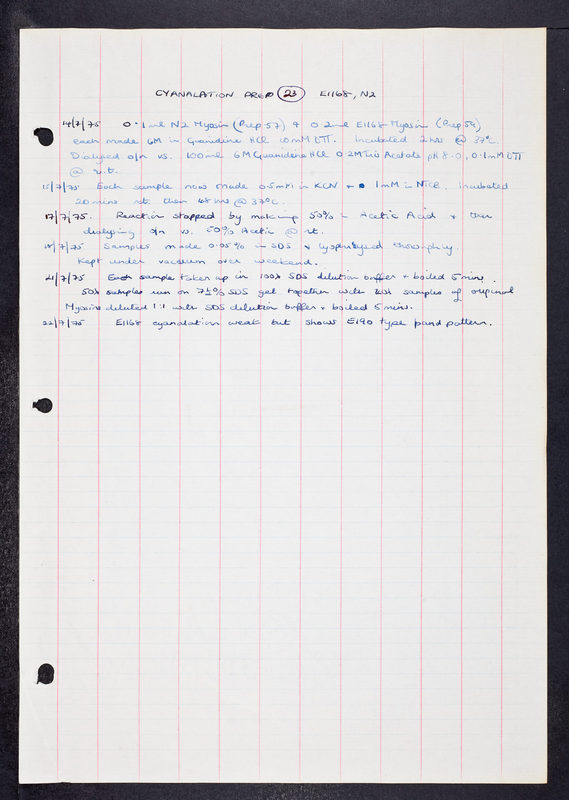 CYANALATION PREP 23 E1168, N2
14/7/75 0.1ml N2 Myosin (Prep 57) & 0.2ml E1168 Myosin (Prep 54)
each made 6M in Guanidine HCl 10mM DTT. Incubated 2hrs @ 37°C.
Dialysed o/n vs. 100ml 6M Guanidine HCl 0.2M Tris Acetate pH 8.0, 0.1mM DTT
@ r.t.
15/7/75 Each sample now made 0.5M in KCN + 1mM in NTCB. Incubated
20mins r.t. then 48 hrs @ 37°C.
17/7/75. Reaction stopped by making 50% in Acetic Acid + then
dialysing o/n vs. 50% Acetic @ r.t.
18/7/75 Samples made 0.05% in SDS & lyophilysed thoroughly.
Kept under vacuum over weekend.
21/7/75 Each sample taken up in 100λ SDS dilution buffer + boiled 5 mins.
50λ samples run on 7½% SDS gel together with samples of original
Myosins diluted 1:1 with SDS dilution buffer + boiled 5 mins.
22/7/75 E1168 cyanalation weak but shows E190 type band pattern.